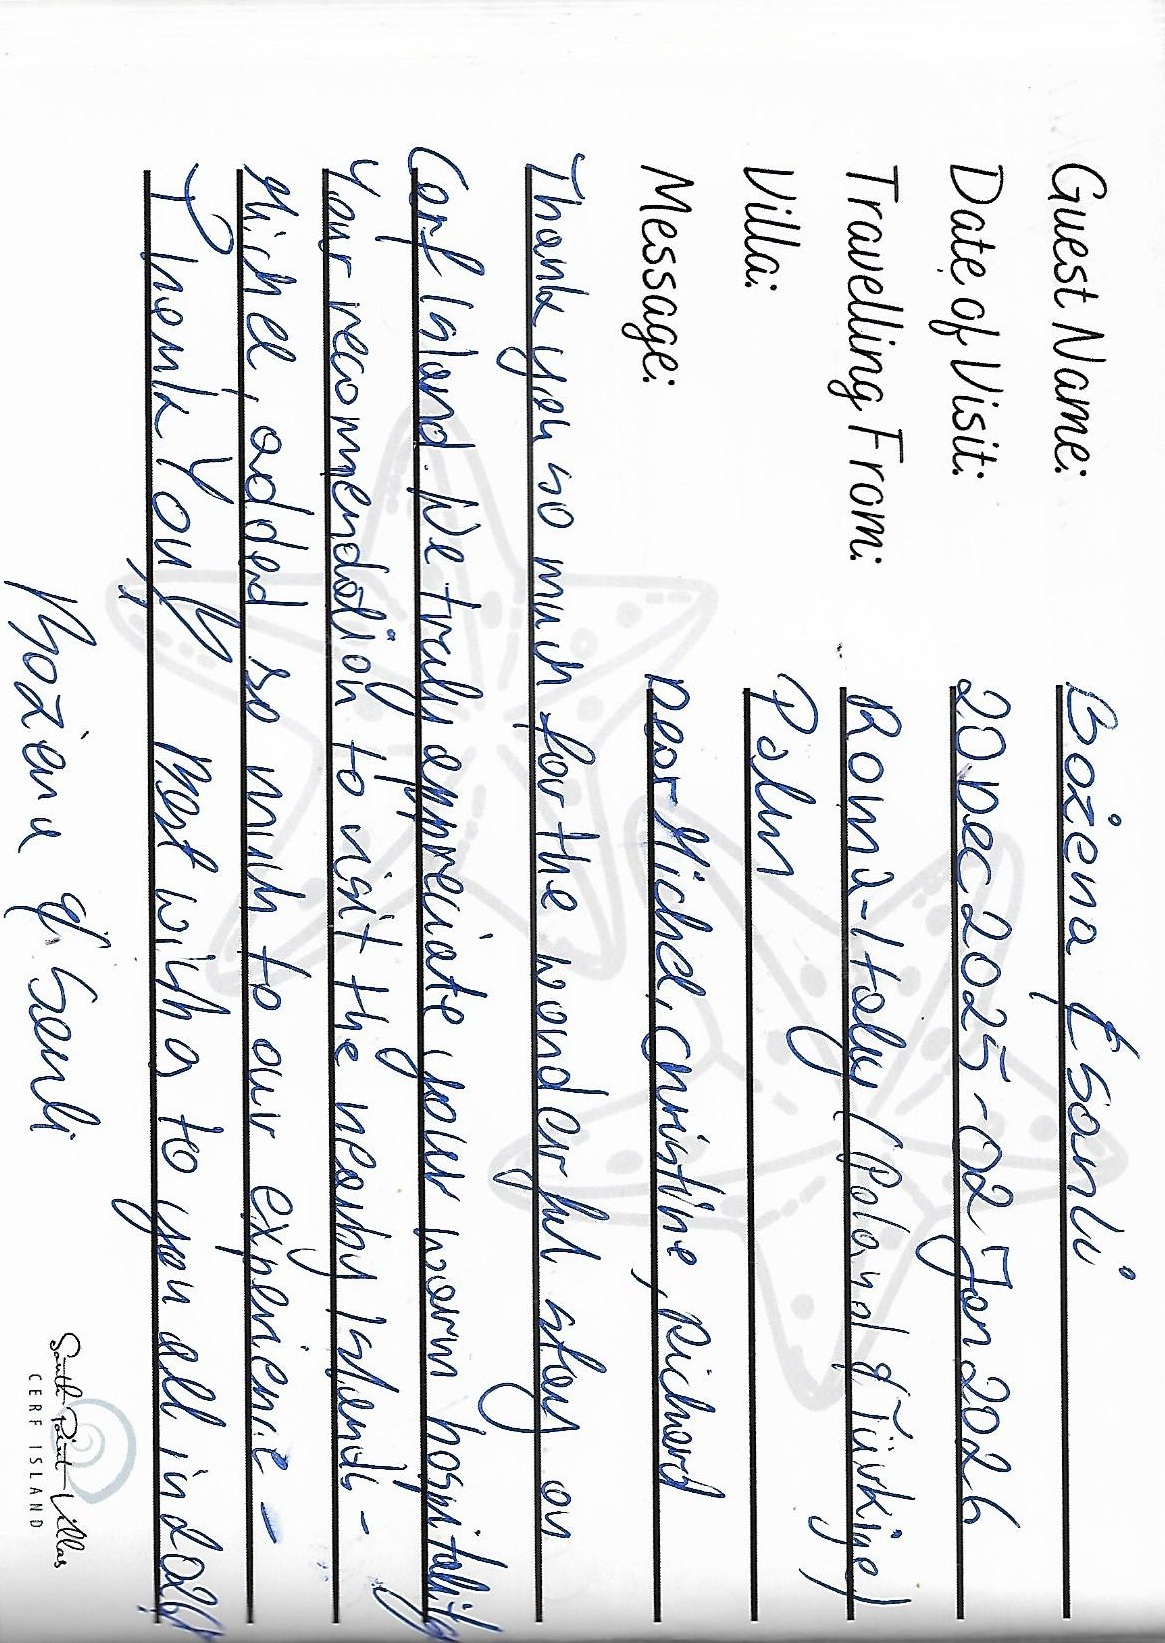 Guest Name: Bożena & Sanlı
Date of Visit: 20 Dec 2025 - 02 Jan 2026
Travelling From: Roma - Italy (Poland & Türkiye)
Villa: Palm
Message: Dear Michel, Christine, Richard
Thank you so much for the wonderful stay on
Cerf Island. We truly appreciate your warm hospitality
Your recommendation to visit the nearby Islands -
Michel, added so much to our experience -
Thank You, Best wishes to you all in 2026
Bożena & Sanlı
South Point Villas
CERF ISLAND